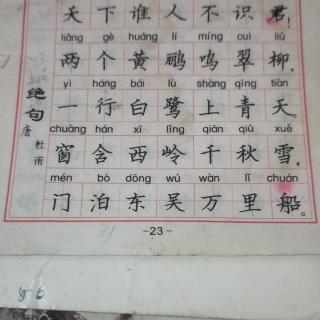 天下谁人不识君!
liǎng gè huáng lí míng cuì liǔ
两个黄鹂鸣翠柳,
yì háng bái lù shàng qīng tiān
一行白鹭上青天。
chuāng hán xī lǐng qiān qiū xuě
窗含西岭千秋雪,
mén bó dōng wú wàn lǐ chuán
门泊东吴万里船。
绝句
唐 杜甫
-23-